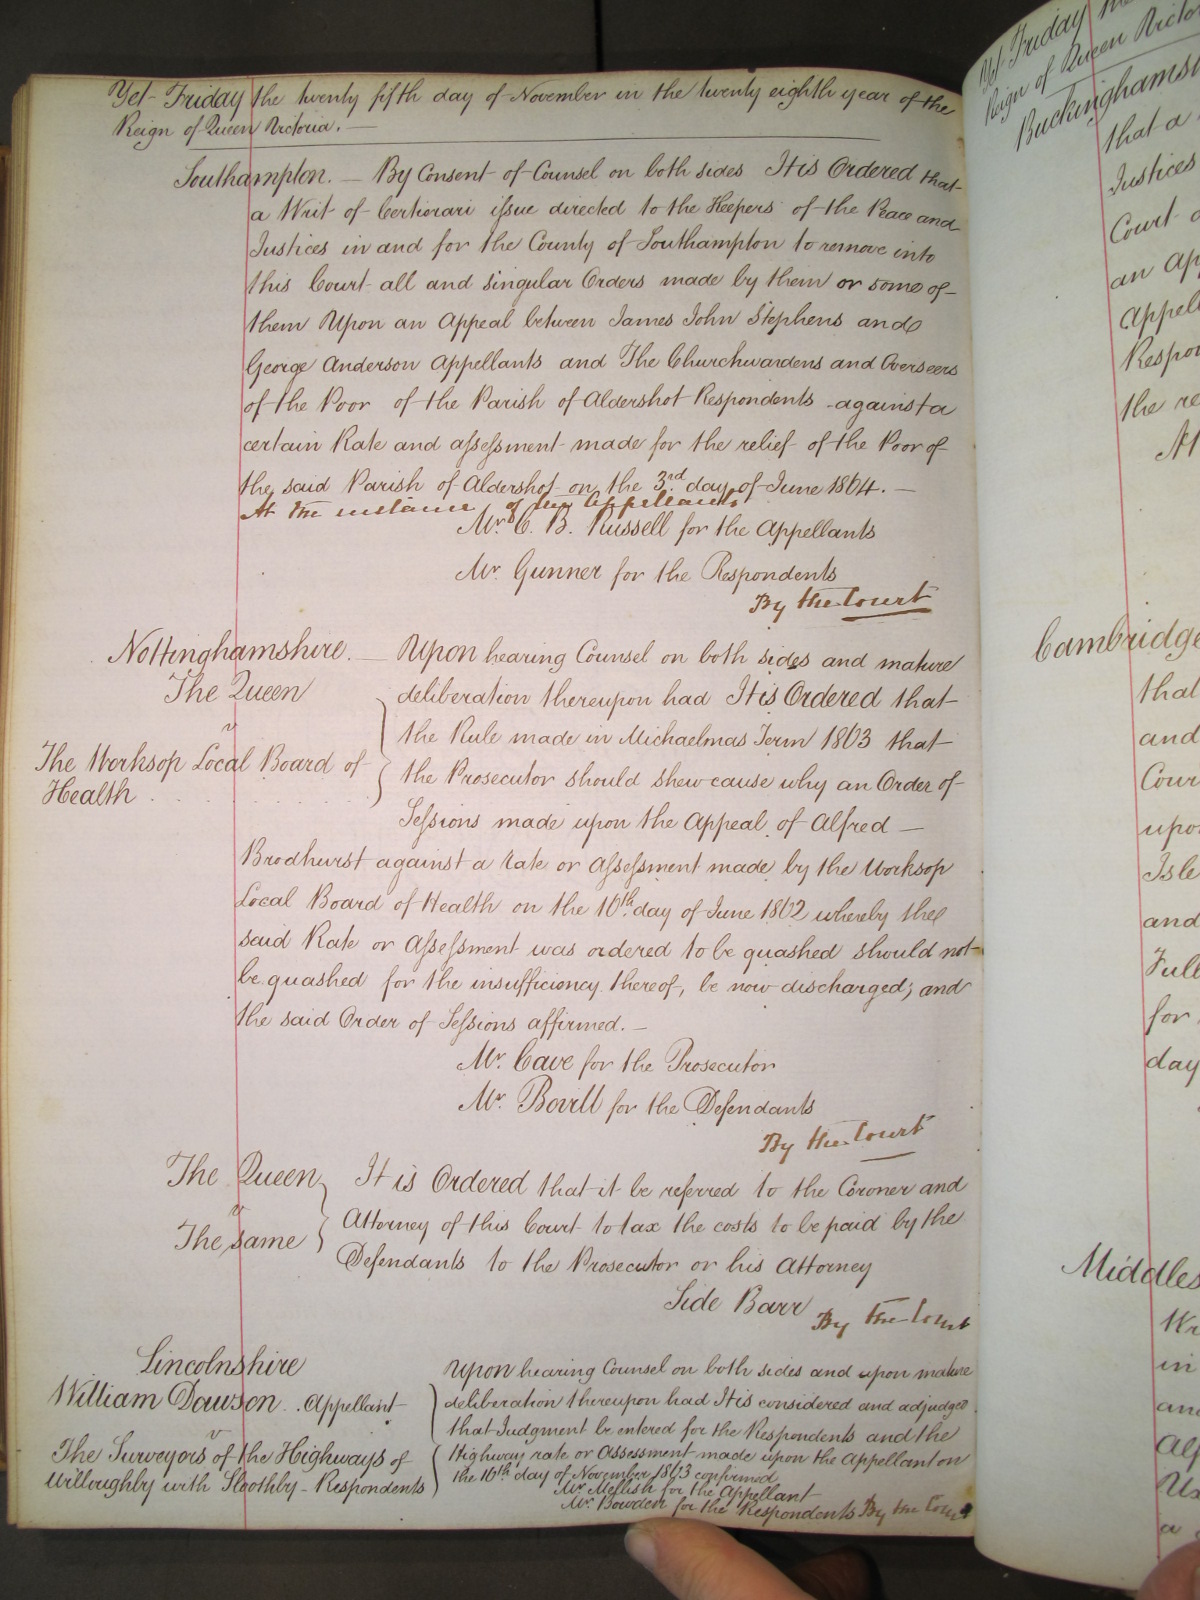 Yet Friday the twenty fifth day of November in the twenty eighth year of the
Reign of Queen Victoria. —
Southampton. — By Consent of Counsel on both sides It is Ordered that
a Writ of Certiorari issue directed to the Keepers of the Peace and
Justices in and for the County of Southampton to remove into
this Court all and singular Orders made by them or some of
them Upon an Appeal between James John Stephens and
George Anderson Appellants and The Churchwardens and Overseers
of the Poor of the Parish of Aldershot Respondents against a
certain Rate and assessment made for the relief of the Poor of
the said Parish of Aldershot on the 3rd day of June 1864. —
At the instance of the Appellants
Mr. C. B. Russell for the Appellants
Mr. Gunner for the Respondents
By the Court
Nottinghamshire. — Upon hearing Counsel on both sides and mature
The Queen
v
The Worksop Local Board of
Health
deliberation thereupon had It is Ordered that
the Rule made in Michaelmas Term 1863 that
the Prosecutor should shew cause why an Order of
Sessions made upon the Appeal of Alfred —
Brodhurst against a Rate or Assessment made by the Worksop
Local Board of Health on the 10th day of June 1862 whereby the
said Rate or Assessment was ordered to be quashed should not
be quashed for the insufficiency thereof, be now discharged; and
the said Order of Sessions affirmed. —
Mr. Cave for the Prosecutor
Mr. Bovill for the Defendants
By the Court
The Queen
v
The same
It is Ordered that it be referred to the Coroner and
Attorney of this Court to tax the costs to be paid by the
Defendants to the Prosecutor or his Attorney
Side Barr By the Court
Lincolnshire
William Dawson . . Appellant
v
The Surveyors of the Highways of
Willoughby with Sloothby - Respondents
Upon hearing Counsel on both sides and upon mature
deliberation thereupon had It is considered and adjudged
that Judgment be entered for the Respondents and the
Highway rate or Assessment made upon the Appellant on
the 10th day of November 1863 confirmed
Mr Mellish for the Appellant
Mr. Bowden for the Respondents By the Court
Yet Friday the
Reign of Queen Victor
Buckinghamsh
that a
Justices
Court
an app
Appell
Respon
the re
Cambridge
that
and
Cour
upon
Isle
and
Full
for
day
Middles
Wr
in
and